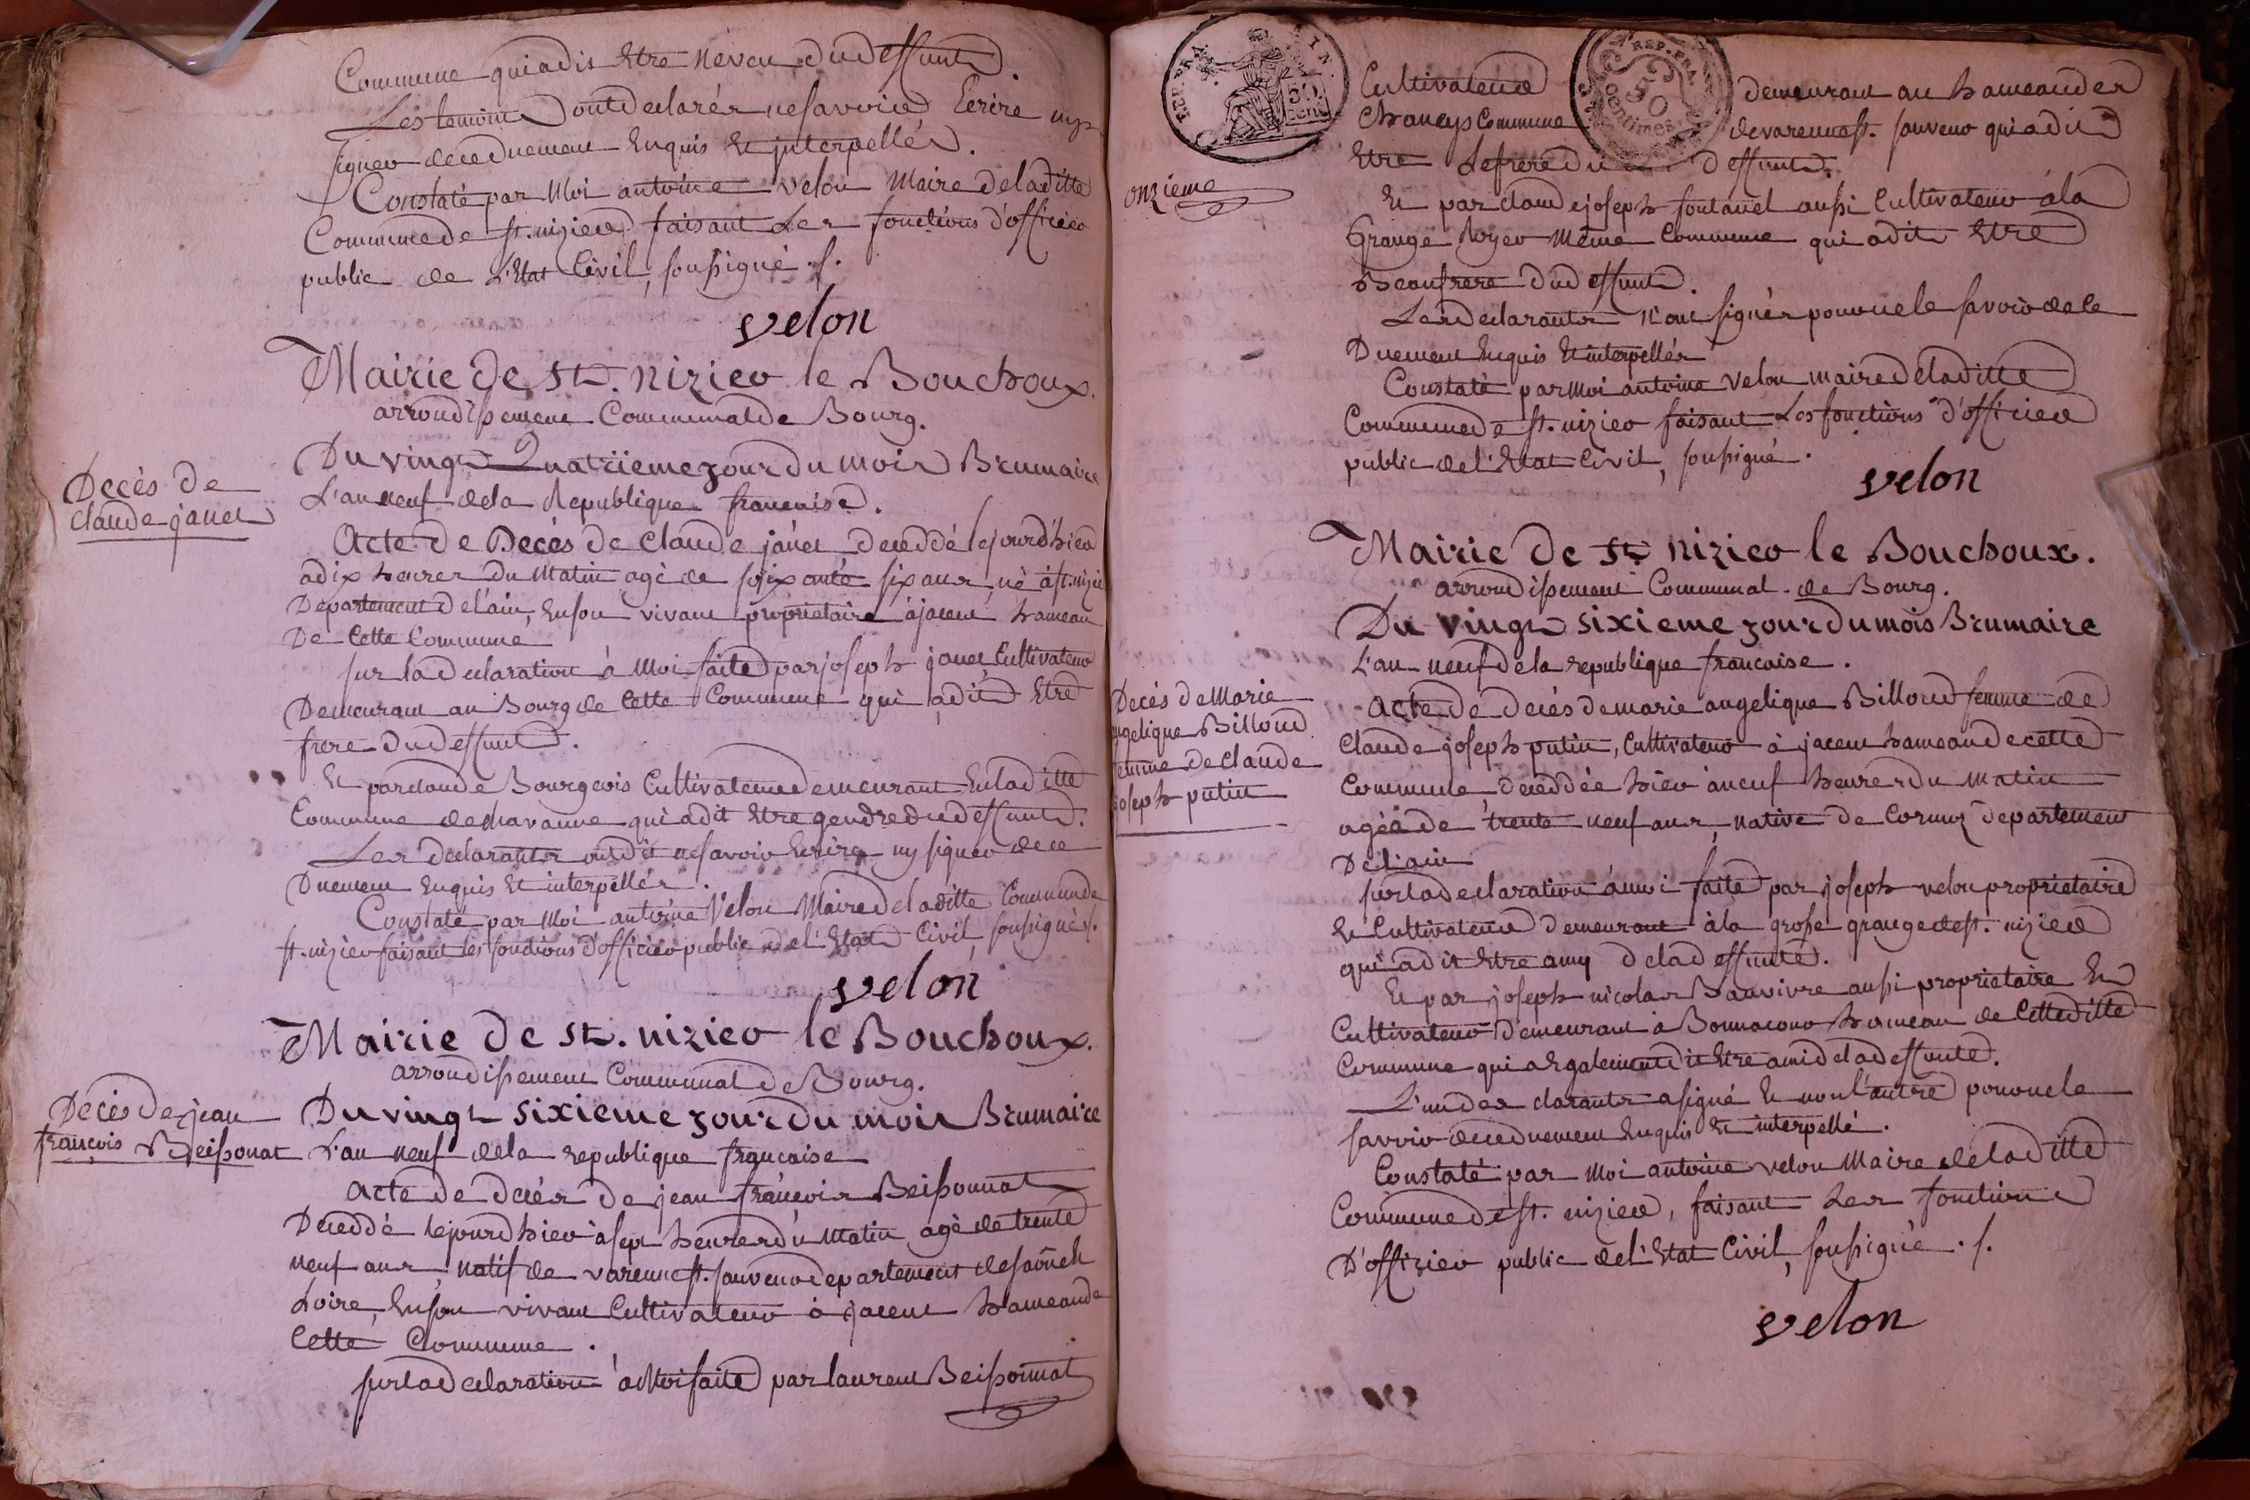 Commune qui a dit Etre neveu dud deffunt.
Les temoins ont declarés ne savoir Ecrire ny
signer de ce duement Enquis Et interpellés.
Constaté par Moi antoine velon Maire de laditte
Commune de st. nizier faisant Les fonctions d'officier
public de L'Etat Civil, soussigné ./.
velon
Mairie de St. nizier le Bouchoux.
arrondissement Communal de Bourg.
Decès de
claude janet
Du vingt Quatrieme jour du mois Brumaire
L'an neuf de la Republique francaise.
Acte de Decès de claude janet deceddé le jourd'hier
a dix heures du Matin agé de soixante six ans, né à st. nizier
Departement de l'ain, En son vivant proprietaire à jacent hameau
De Cette Commune
sur la declaration à Moi faite par joseph janet Cultivateur
Demeurant au Bourg de Cette Commune qui a dit Etre
frere dud deffunt.
Et par claude Bourgeois Cultivateur demeurant En la ditte
Commune de chavanne qui a dit Etre gendre dud deffunt.
Les declarants ont dit ne savoir Ecrire ny signer de ce
Duement Enquis Et interpellés.
Constaté par Moi antoine Velon Maire de laditte Commune de
st. nizier faisant les fonctions d'officier public de l'Etat Civil soussigné ./.
velon
Mairie de St. nizier le Bouchoux.
arrondissement Communal de Bourg.
Decès de jean
françois Beissonat
Du vingt sixieme jour du mois Brumaire
L'an neuf de la republique francaise
Acte de decés de jean françois Beissonnat
Deceddé le jourd hier à sept heures du Matin agé de trente
neuf ans natif de varenne st. sauveur departement de saône et
Loire, En son vivant Cultivateur à jacent hameau de
Cette Commune.
sur la declaration à Moi faite par laurent Beissonnat
REP. FRA.
50
cent
REP. FRA.
50
centimes
onzieme
Cultivateur demeurant au hameau des
Chaneys Commune de varenne st. sauveur qui a dit
Etre Le frere du deffunt.
Et par claude joseph fontanel aussi Cultivateur à la
Grange Royer Même Commune qui a dit Etre
Beaufrere dud deffunt.
Les declarants n'ont signés pour ne le savoir de ce
Duement Enquis Et interpellés
Constaté par Moi antoine velon maire de laditte
Commune de st. nizier faisant Les fonctions d'officier
public de l'Etat Civil, soussigné.
velon
Mairie de St nizier le Bouchoux.
arrondissement Communal de Bourg.
Du vingt sixieme jour du mois Brumaire
L'an neuf de la republique francaise.
Decès de Marie
angelique Billoud
femme de claude
joseph putin
Acte de decés de marie angelique Billoud femme de
Claude joseph putin, Cultivateur à jacent hameau de cette
Commune, deceddée hier à neuf heures du matin
agée de trente neuf ans, native de Cormoz departement
De l'ain
sur la declaration à moi faite par joseph velon proprietaire
Et Cultivateur demeurant à la grosse grange de st. nizier
qui a dit Etre amy de la deffunte.
Et par joseph nicolas Bauvivre aussi proprietaire Et
Cultivateur demeurant à Bonnacour hameau de Cetteditte
Commune qui a Egalement dit Etre ami de la deffunte.
L'un des clarants a signé Et non l'autre pour ne le
savoir de ce duement Enquis Et interpellé.
Constaté par Moi antoine velon Maire de laditte
Commune de st. nizier, faisant Les fonctions
D'officier public de l'Etat Civil, soussigné ./.
velon